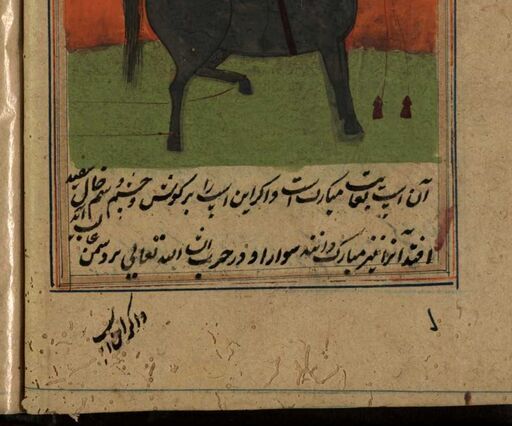 آن اسپ بغایت مبارک است و اگر این اسپ را بر گوش و چشم و سم خال سفید
افتد آنرا نیز مبارک دانند سوار او در حرب ان الله تعالی بر دشمن
و اگر این اسپ